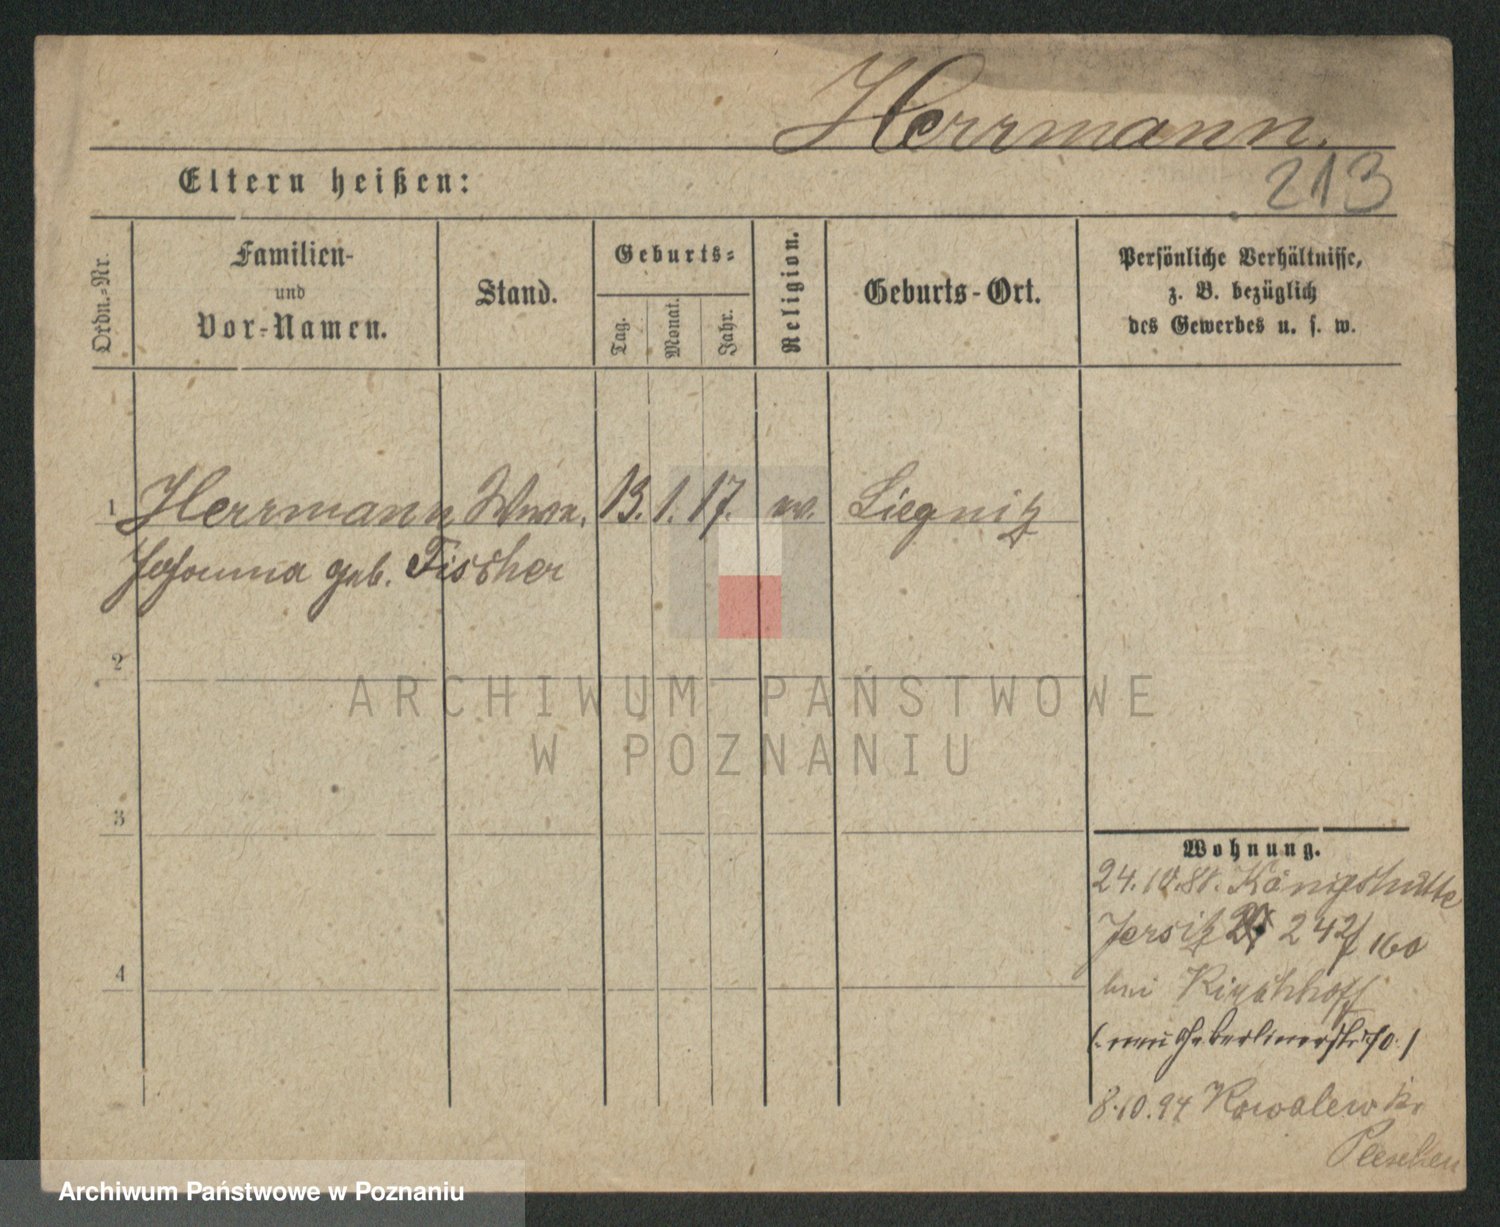 Herrmann.
213
Eltern heißen:
Ordn.-Nr.
Familien-
und
Vor-Namen.
Stand.
Geburts-
Tag.
Monat.
Jahr.
Religion.
Geburts-Ort.
Persönliche Verhältnisse,
z. B. bezüglich
des Gewerbes u. s. w.
1 Herrmann Wwe. 13. 1. 17. ev. Liegnitz
Johanna geb. Fischer
2
ARCHIWUM PAŃSTWOWE
W POZNANIU
3
Wohnung.
24.10.88. Königshütte
Jersitz 242/160
4
bei Kirchhoff
8.10.94 Kowalew Kr
Pleschen
Archiwum Państwowe w Poznaniu